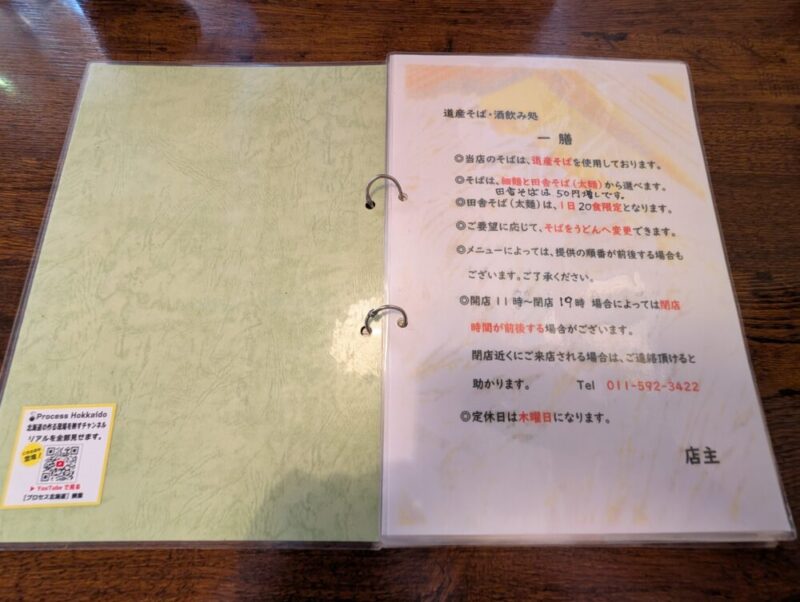 Process Hokkaido
北海道の作る現場を映すチャンネル
リアルを全部見せます。
▶ YouTube で見る
[プロセス北海道] 検索
道産そば・酒飲み処
一膳
◎当店のそばは、道産そばを使用しております。
◎そばは、細麺と田舎そば(太麺)から選べます。
田舎そばは 50円増しです。
◎田舎そば(太麺)は、1日20食限定となります。
◎ご要望に応じて、そばをうどんへ変更できます。
◎メニューによっては、提供の順番が前後する場合も
ございます。ご了承ください。
◎開店 11時~閉店 19時 場合によっては閉店
時間が前後する場合がございます。
閉店近くにご来店される場合は、ご連絡頂けると
助かります。 Tel 011-592-3422
◎定休日は木曜日になります。
店主